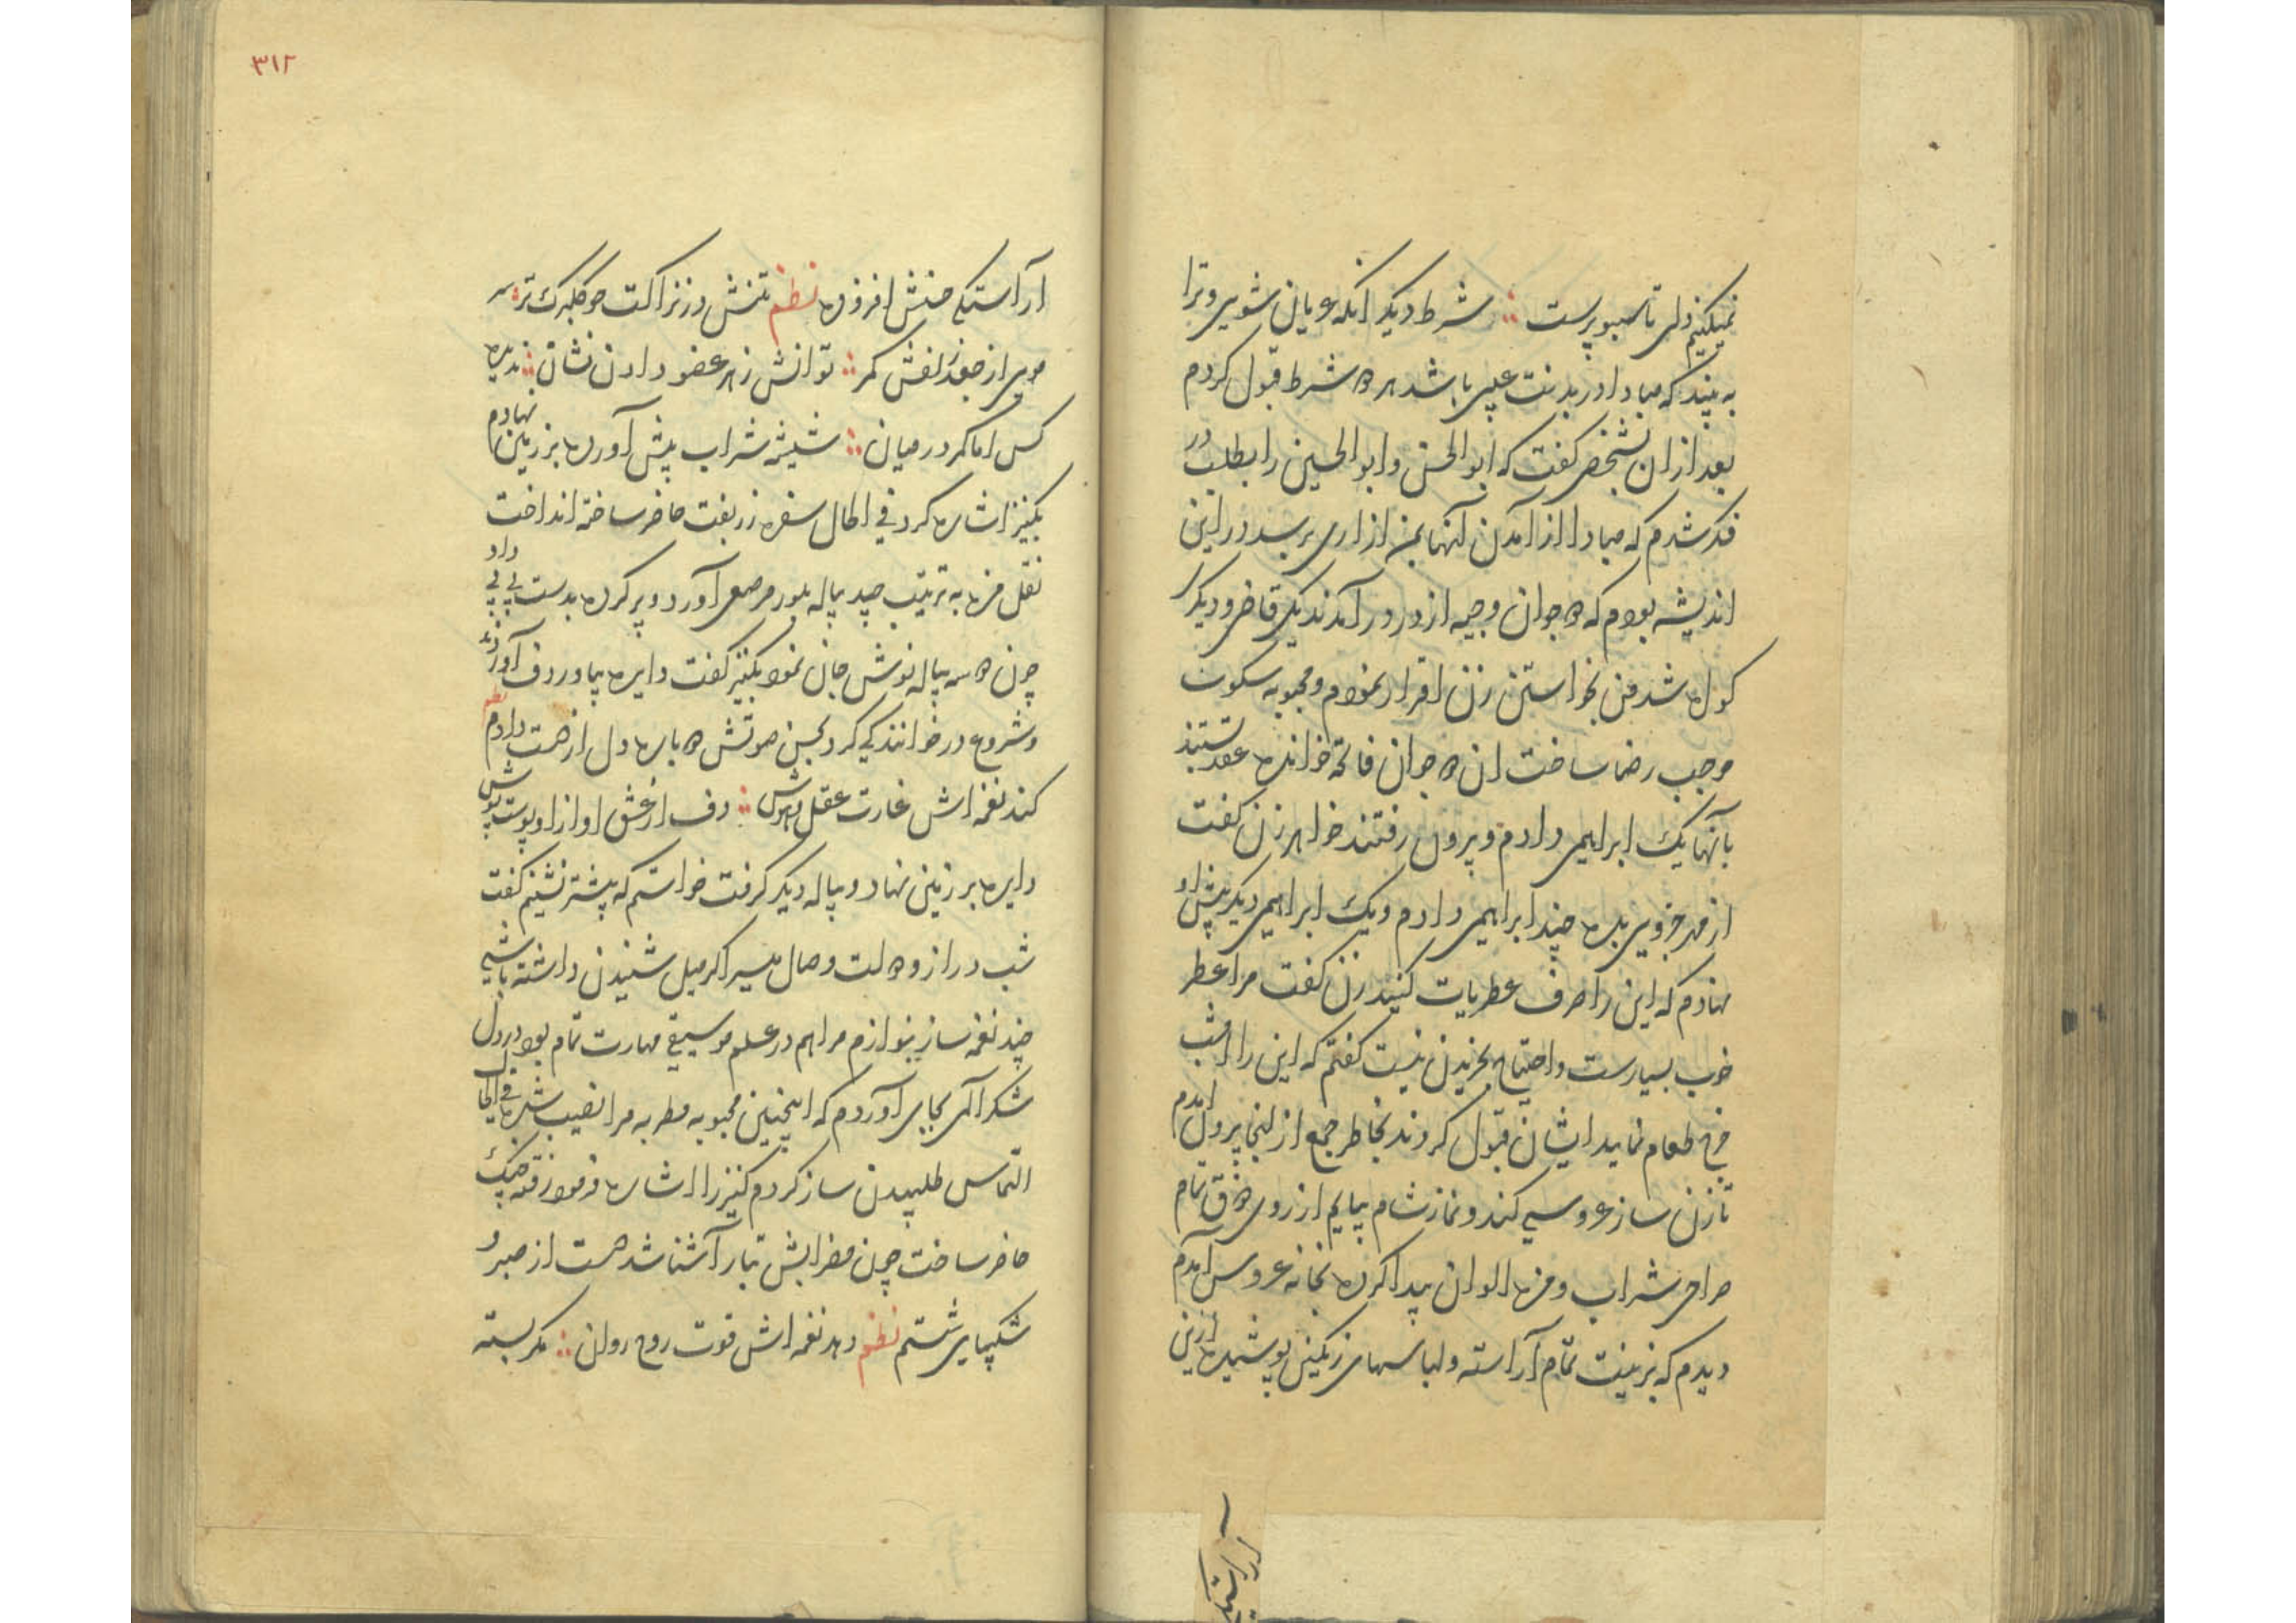 نمیکنیم ولی تا سبو پرست ∴ شرط دیکر انکه عریان شوی و ترا
به بیند که مبادا در بدنت عیبی باشد هر دو شرط قبول کردم
بعد ازان بشخصی کفت که ابو الحسن و ابو الحسین را بطلب در
فکر شدم که مبادا از آمدن آنها بمن ازاری برسد در این
اندیشه بودم که دو جوان وجیه از در در آمدند یکی قاضی و دیکر
کواه شد من بخواستن زن اقرار نمودم و محبوبه سکوت
موجب رضا ساخت ان دو جوان فاتحه خوانده عقد بستند
بآنها یک ابراهیمی دادم و بیرون رفتند خواهر زن کفت
از مهر جزوی بده چند ابراهیمی دادم و یک ابراهیمی دیکر پیش او
نهادم که این را صرف عطریات کنید زن کفت مرا عطر
خوب بسیارست و احتیاج بخریدن نیست کفتم که این را امشب
خرج طعام نمایید ایشان قبول کردند بخاطر جمع از انجا بیرون امدم
تا زن ساز عروسی کند و نماز شام بیایم از روی ذوق تمام
صراحی شراب و مزه الوان پیدا کرده بخانه عروس آمدم
دیدم که بزینت تمام آراسته و لباسهای رنکین پوشیده ازین
آراستکی
۳۱۲
ارآستکی حسنش افزوده نظم تنش در نزاکت چو کلبرک تر ∴ سر
موی از جعد زلفش کمر ∴ توانش ز هر عضو دادن نشان ∴ ندیده
کس اما کمر در میان ∴ شیشه شراب پیش آورده بر زمین نهادم
بکنیز اشاره کرد فی الحال سفره زربفت حاضر ساخته انداخت
نقل مزه به ترتیب چید پیاله بلور مرصعی آورد و پر کرده بدست بی بی داد
چون دو سه پیاله نوش جان نمود بکنیز کفت دایره بیاور دف آورد
و شروع در خوانندکی کرد بحسن صوتش دوباره دل از دست دادم نظم
کند نغمه اش غارت عقل و هوش ∴ دف از عشق اواز او پوست پوش
دایره بر زمین نهاد و پیاله دیکر کرفت خواستم که پیشتر نشینم کفت
شب دراز و دولت وصال میسر اکر میل شنیدن داشته باشی
چند نغمه ساز بنوازم مرا هم در علم موسیقی مهارت تمام بود در دل
شکر آلهی بجای آوردم که اینچنین محبوبه مطربه مرا نصیب شده فی الحال
التماس طلبیدن ساز کردم کنیز را اشاره فرمود رفته چنک
حاضر ساخت چون مضرابش بتار آشنا شد دست از صبر و
شکیبایی شستم نظم دهد نغمه اش قوت روح روان ∴ کمر بسته